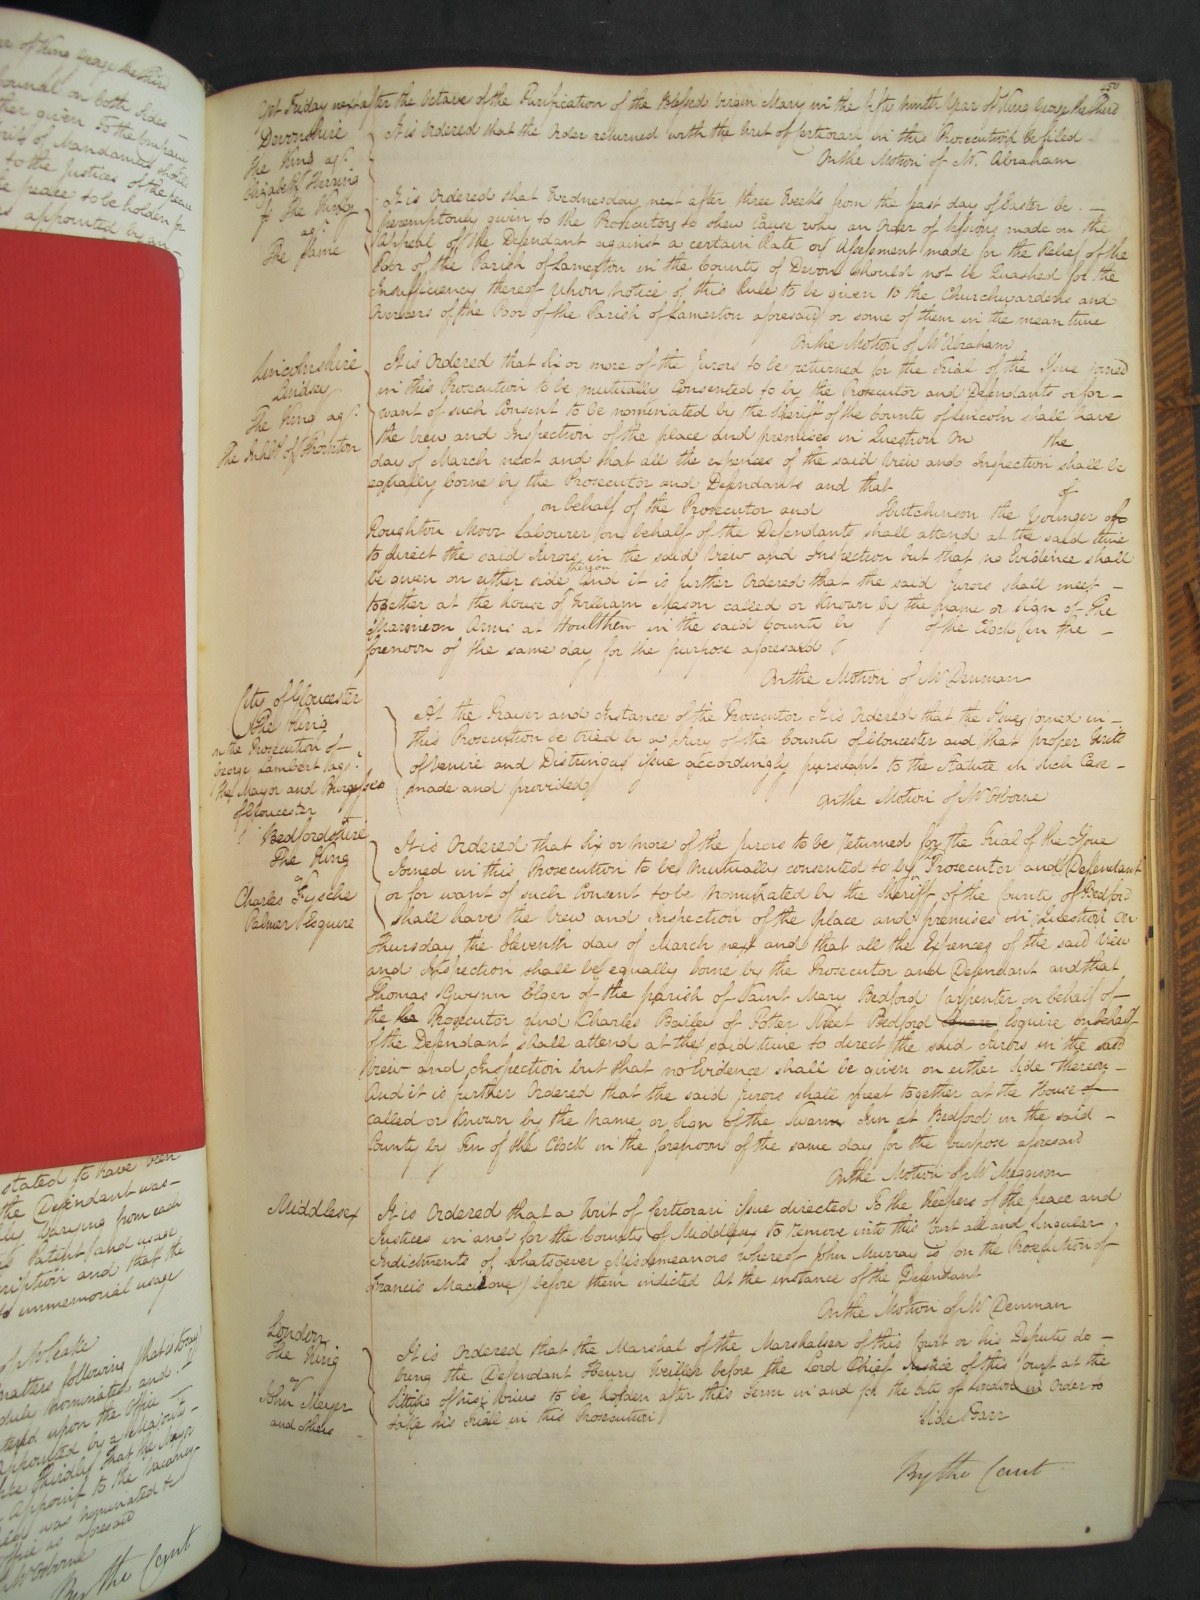 r of King George the Third
ther given To the
Writ of Mandamus
to the Justices of the peace
peace to be holden
appointed by an
stated to have been
the Defendant was
varying from each
Patent and usage
and that the
immemorial usage
matters following that is to say
duly nominated and
upon the Office
appointed by a
Thirdly that the Mayor
appoint to the vacancy
was nominated
Office as aforesaid
Mr Osborne
By the Court
450
Yet Friday next after the Octave of the Purification of the Blessed Virgin Mary in the fifty ninth Year of King George the Third
Devonshire
The King agt.
Elizabeth Herring
It is Ordered that the Order returned with the Writ of Certiorari in this Prosecution be filed
On the Motion of Mr. Abraham
The King
agt.
The same
It is Ordered that Wednesday next after three Weeks from the feast day of Easter be
peremptorily given to the Prosecutors to shew Cause why an Order of Sessions made on the
Appeal of the Defendant against a certain Rate or Assessment made for the Relief of the
Poor of the Parish of Lamerton in the County of Devon Should not be Quashed for the
Insufficiency thereof Upon Notice of this Rule to be given to the Churchwardens and
Overseers of the Poor of the Parish of Lamerton aforesaid or some of them in the mean time
On the Motion of Mr Abraham
Lincolnshire
Lindsey
The King agt.
The Inhbts of Thornton
It is Ordered that Six or more of the Jurors to be returned for the Trial of the Issue joined
in this Prosecution to be mutually Consented to by the Prosecutor and Defendants or for
want of such Consent to be nominated by the Sheriff of the County of Lincoln shall have
the View and Inspection of the place and premises in Question On the
day of March next and that all the expences of the said View and Inspection shall be
equally borne by the Prosecutor and Defendants and that of
on behalf of the Prosecutor and Hutchinson the Younger of
Roughton Moor Labourer on behalf of the Defendants shall attend at the said time
to direct the said Jurors in the said View and Inspection but that no Evidence shall
be given on either side thereon And it is further Ordered that the said Jurors shall meet
together at the house of William Mason called or known by the name or Sign of the
Marmion Arms at in the said County by of the Clock in the
forenoon of the same day for the purpose aforesaid
On the Motion of Mr Denman
City of Gloucester
The King
on the Prosecution of
George Lambert agt.
The Mayor and Burgesses
of Gloucester
At the Prayer and Instance of the Prosecutor It is Ordered that the Issues joined in
this Prosecution be tried by a Jury of the County of Gloucester and that proper Writs
of Venire and Distringas issue accordingly pursuant to the Statute in such Case
made and provided
On the Motion of Mr Osborne
Bedfordshire
The King
v
Charles Fysche
Palmer Esquire
It is Ordered that Six or more of the Jurors to be returned for the Trial of the Issue
Joined in this Prosecution to be mutually consented to by Prosecutor and Defendant
or for want of such Consent to be Nominated by the Sheriff of the County of Bedford
shall have the View and Inspection of the place and premises in Question On
Thursday the Eleventh day of March next and that all the Expences of the said View
and Inspection shall be equally borne by the Prosecutor and Defendant and that
Thomas Gwynn Elger of the parish of Saint Mary Bedford Carpenter on behalf of
the Prosecutor And Charles Bailey of Potter Street Bedford Esquire on behalf
of the Defendant shall attend at the said time to direct the said Jurors in the said
View and Inspection but that no Evidence shall be given on either side thereon
And it is further Ordered that the said Jurors shall meet together at the House of
called or known by the name or Sign of the Swann Inn at Bedford in the said
County by Ten of the Clock in the forenoon of the same day for the purpose aforesaid
On the Motion of Mr Meggison
Middlesex
It is Ordered that a Writ of Certiorari issue directed To the Keepers of the peace and
Justices in and for the County of Middlesex to remove into this Court all and Singular
Indictments of whatsoever Misdemeanors whereof John Murray is (on the Prosecution of
Francis Macirone) before them indicted At the instance of the Defendant
On the Motion of Mr Denman
London
The King
v
John Meyer
and others
It is Ordered that the Marshal of the Marshalsea of this Court or his Deputy do
bring the Defendant Henry Weiller before the Lord Chief Justice of this Court at the
Sittings of Nisi Prius to be holden after this Term in and for the City of London in Order to
take his Trial in this Prosecution
Side Barr
By the Court